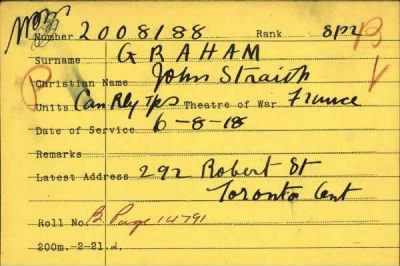 Number 2008188 Rank Spr
B
Surname GRAHAM
Christian Name John Straith
Units Can Rly Tps Theatre of War France
Date of Service 6-8-18
Remarks
Latest Address 292 Robert St
Toronto Ont
Roll No. B. Page 14791
200m.-2-21.